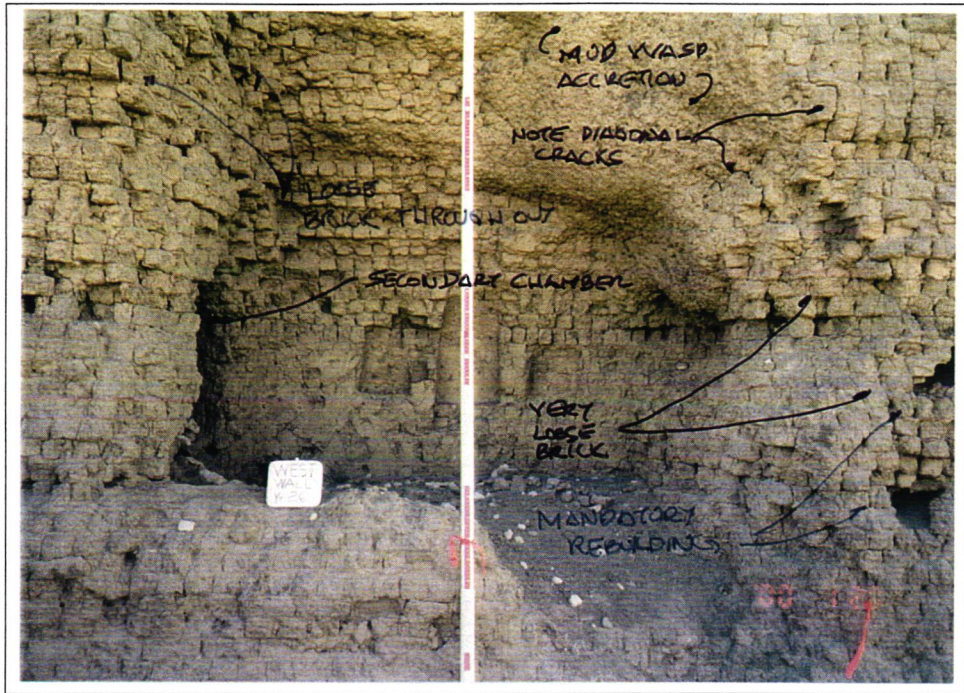 MUD WASP
ACCRETION
NOTE DIAGONAL
CRACKS
LOOSE
BRICK THROUGHOUT
SECONDARY CHAMBER
VERY
LOOSE
BRICK
WEST
WALL
MANDATORY
REBUILDING